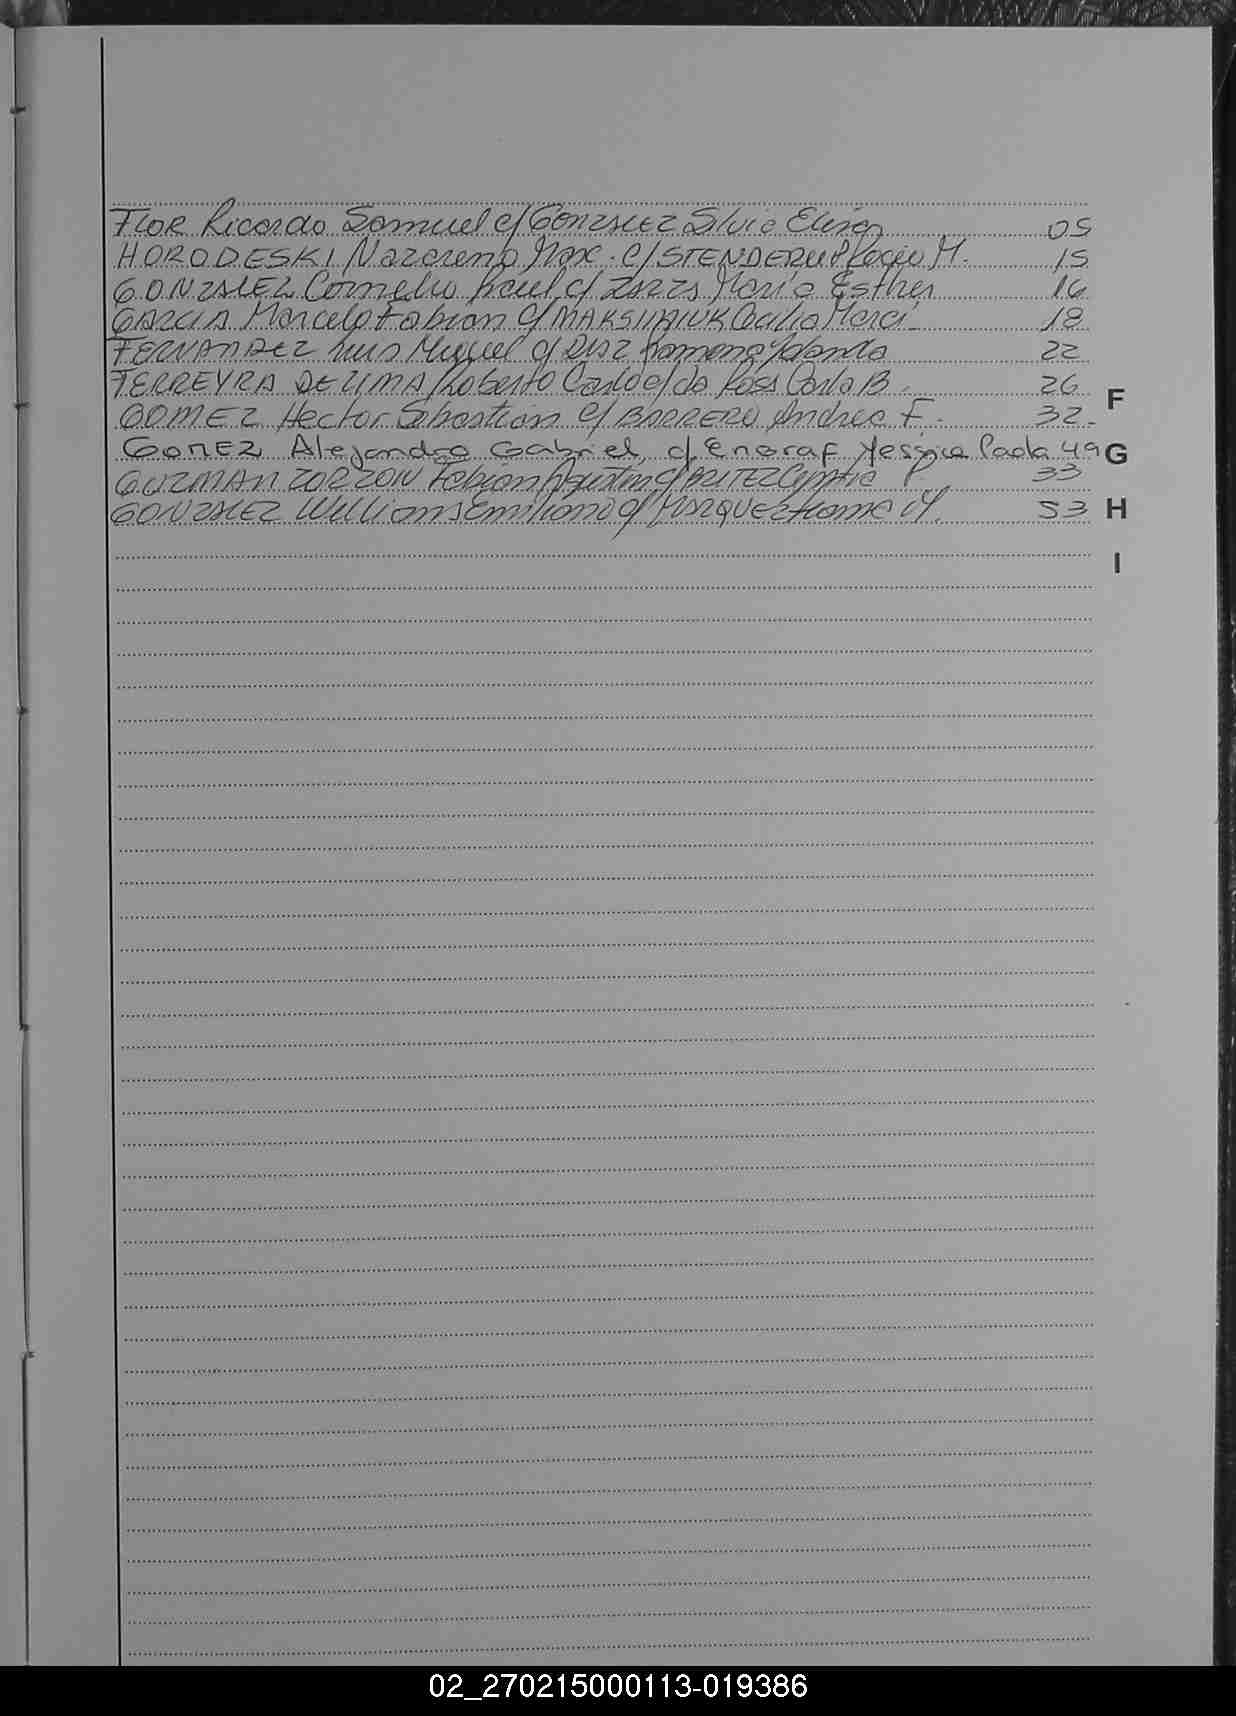 FLOR Ricardo Samuel c/ GONZALEZ Silvia Elisa 05
HORODESKI Nazareno Max. c/ STENDERUP Rocío M. 15
GONZALEZ Cornelio c/ ZARZA María Esther 16
GARCIA Marcelo Fabian c/ MAKSIMIUK Cecilia 18
FERNANDEZ Luis Miguel c/ DIAZ Yolanda 22
FERREYRA DE LIMA Roberto Carlo c/ da Rosa Carla B. 26
GOMEZ Hector Sebastián c/ BARRERO Andrea F. 32-
GOMEZ Alejandro Gabriel c/ Yessica Paola 49
GUZMAN ZORZON Fabian Agustin c/ BRITEZ P. 33
GONZALEZ Willians Emiliano c/ M. 53
F
G
H
I
02_270215000113-019386